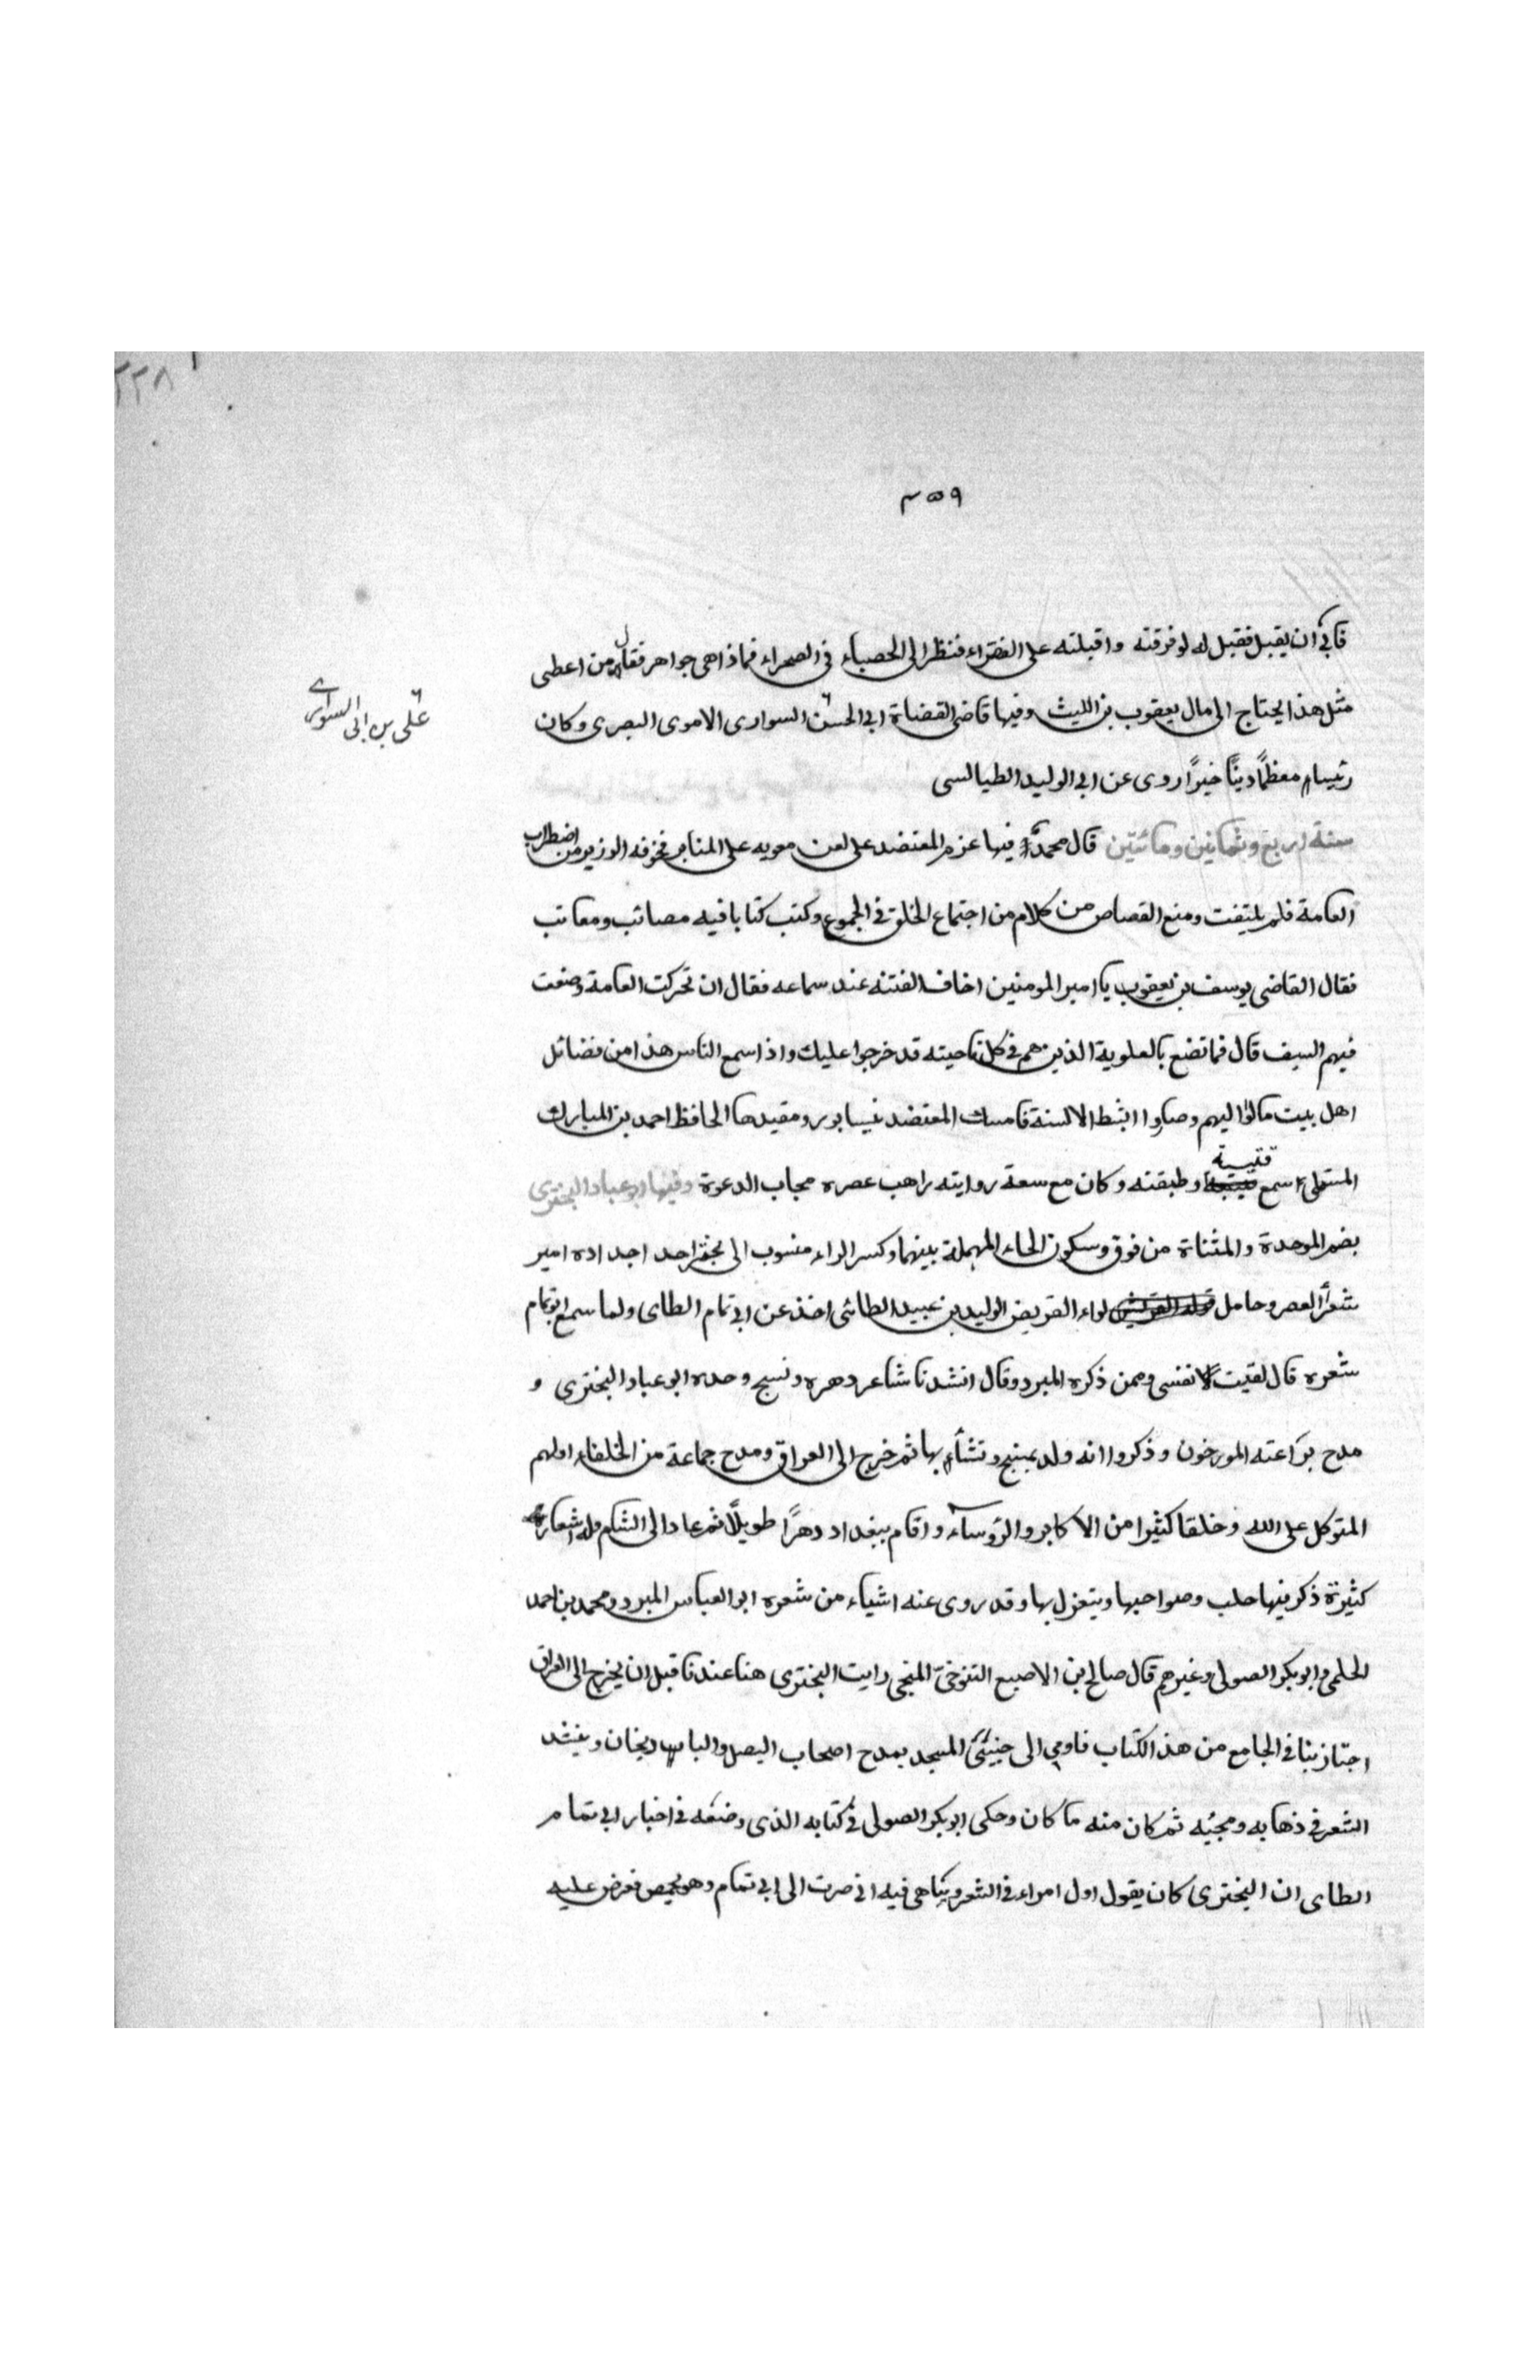 ٢٢٨
٤٥٩
فابى ان يقبل فقيل له لو فرقته واقبلته على الفقراء فنظر الى الحصباء في الصحراء فماذا هى جواهر فقال من اعطى
مثل هذا يحتاج الى مال يعقوب بن الليث وفيها قاضى القضاة ابي الحسن السوارى الاموى البصرى وكان
على بن ابى السوارى
رئيسا معظمًا دينًا خيرًا روى عن ابي الوليد الطيالسى
سنة اربع وثمانين ومائتين قال محمد وفيها عزم المعتضد على لعن معويه على المنابر فخوفه الوزير من اضطراب
العامة فلم يلتفت ومنع القصاص من كلام من اجتماع الخلق في الجموع وكتب كتابا فيه مصائب ومعائب
فقال القاضى يوسف بن يعقوب يا امير المومنين اخاف الفتنه عند سماعه فقال ان تحركت العامة وضعت
فيهم السيف قال فما تضع بالعلوية الذين هم في كل ناحيته قد خرجوا عليك واذا سمع الناس هذا من فضائل
اهل بيت مالوا اليهم وصاروا ابشط الالسنة فامسك المعتضد نيسابور ومقيدها الحافظ احمد بن المبارك
المستملى سمع قتيبة وطبقته وكان مع سعة روايته راهب عصره مجاب الدعوة وفيها ابو عباد البختري
بضم الموحدة والمثناة من فوق وسكون الحاء المهملة بينهما وكسر الراء منسوب الى بختر احد اجداده امير
شعرأ العصر وحامل لواء القريض الوليد بن عبيد الطائى اخذ عن ابي تمام الطاى ولما سمع ابو تمام
شعره قال لقيت نفسى وممن ذكره المبرد وقال انشدنا شاعر دهره ونسيج وحده ابو عباد البخترى و
مدح براعته المورخون وذكروا انه ولد بمنبج ونشأ بها ثم خرج الى العراق ومدح جماعة من الخلفاء اولهم
المتوكل على الله وخلقا كثيرا من الاكابر والروساء واقام ببغداد دهرًا طويلًا ثم عاد الى الشام وله اشعار
كثيرة ذكر فيها حلب وصواحبها ويتغزل بها وقد روى عنه اشياء من شعره ابو العباس المبرد ومحمد بن احمد
الحلمى وابو بكر الصولى وغيرهم قال صالح بن الاصبع التنوخىّ المنبجى رايت البخترى هنا عندنا قبل ان يخرج الى العراق
اجتاز بنا في الجامع من هذا الكتاب فاومي الى جنبتى المسجد يمدح اصحاب البصل والباديجان وينشد
الشعر في ذهابه ومجيئه ثم كان منه ما كان وحكى ابو بكر الصولى في كتابه الذى وضعه في اخبار ابى تمام
الطاى ان البخترى كان يقول اول امراء في الشعر ونباهى فيه انى صرت الى ابى تمام وهو بحمص فعرض عليه